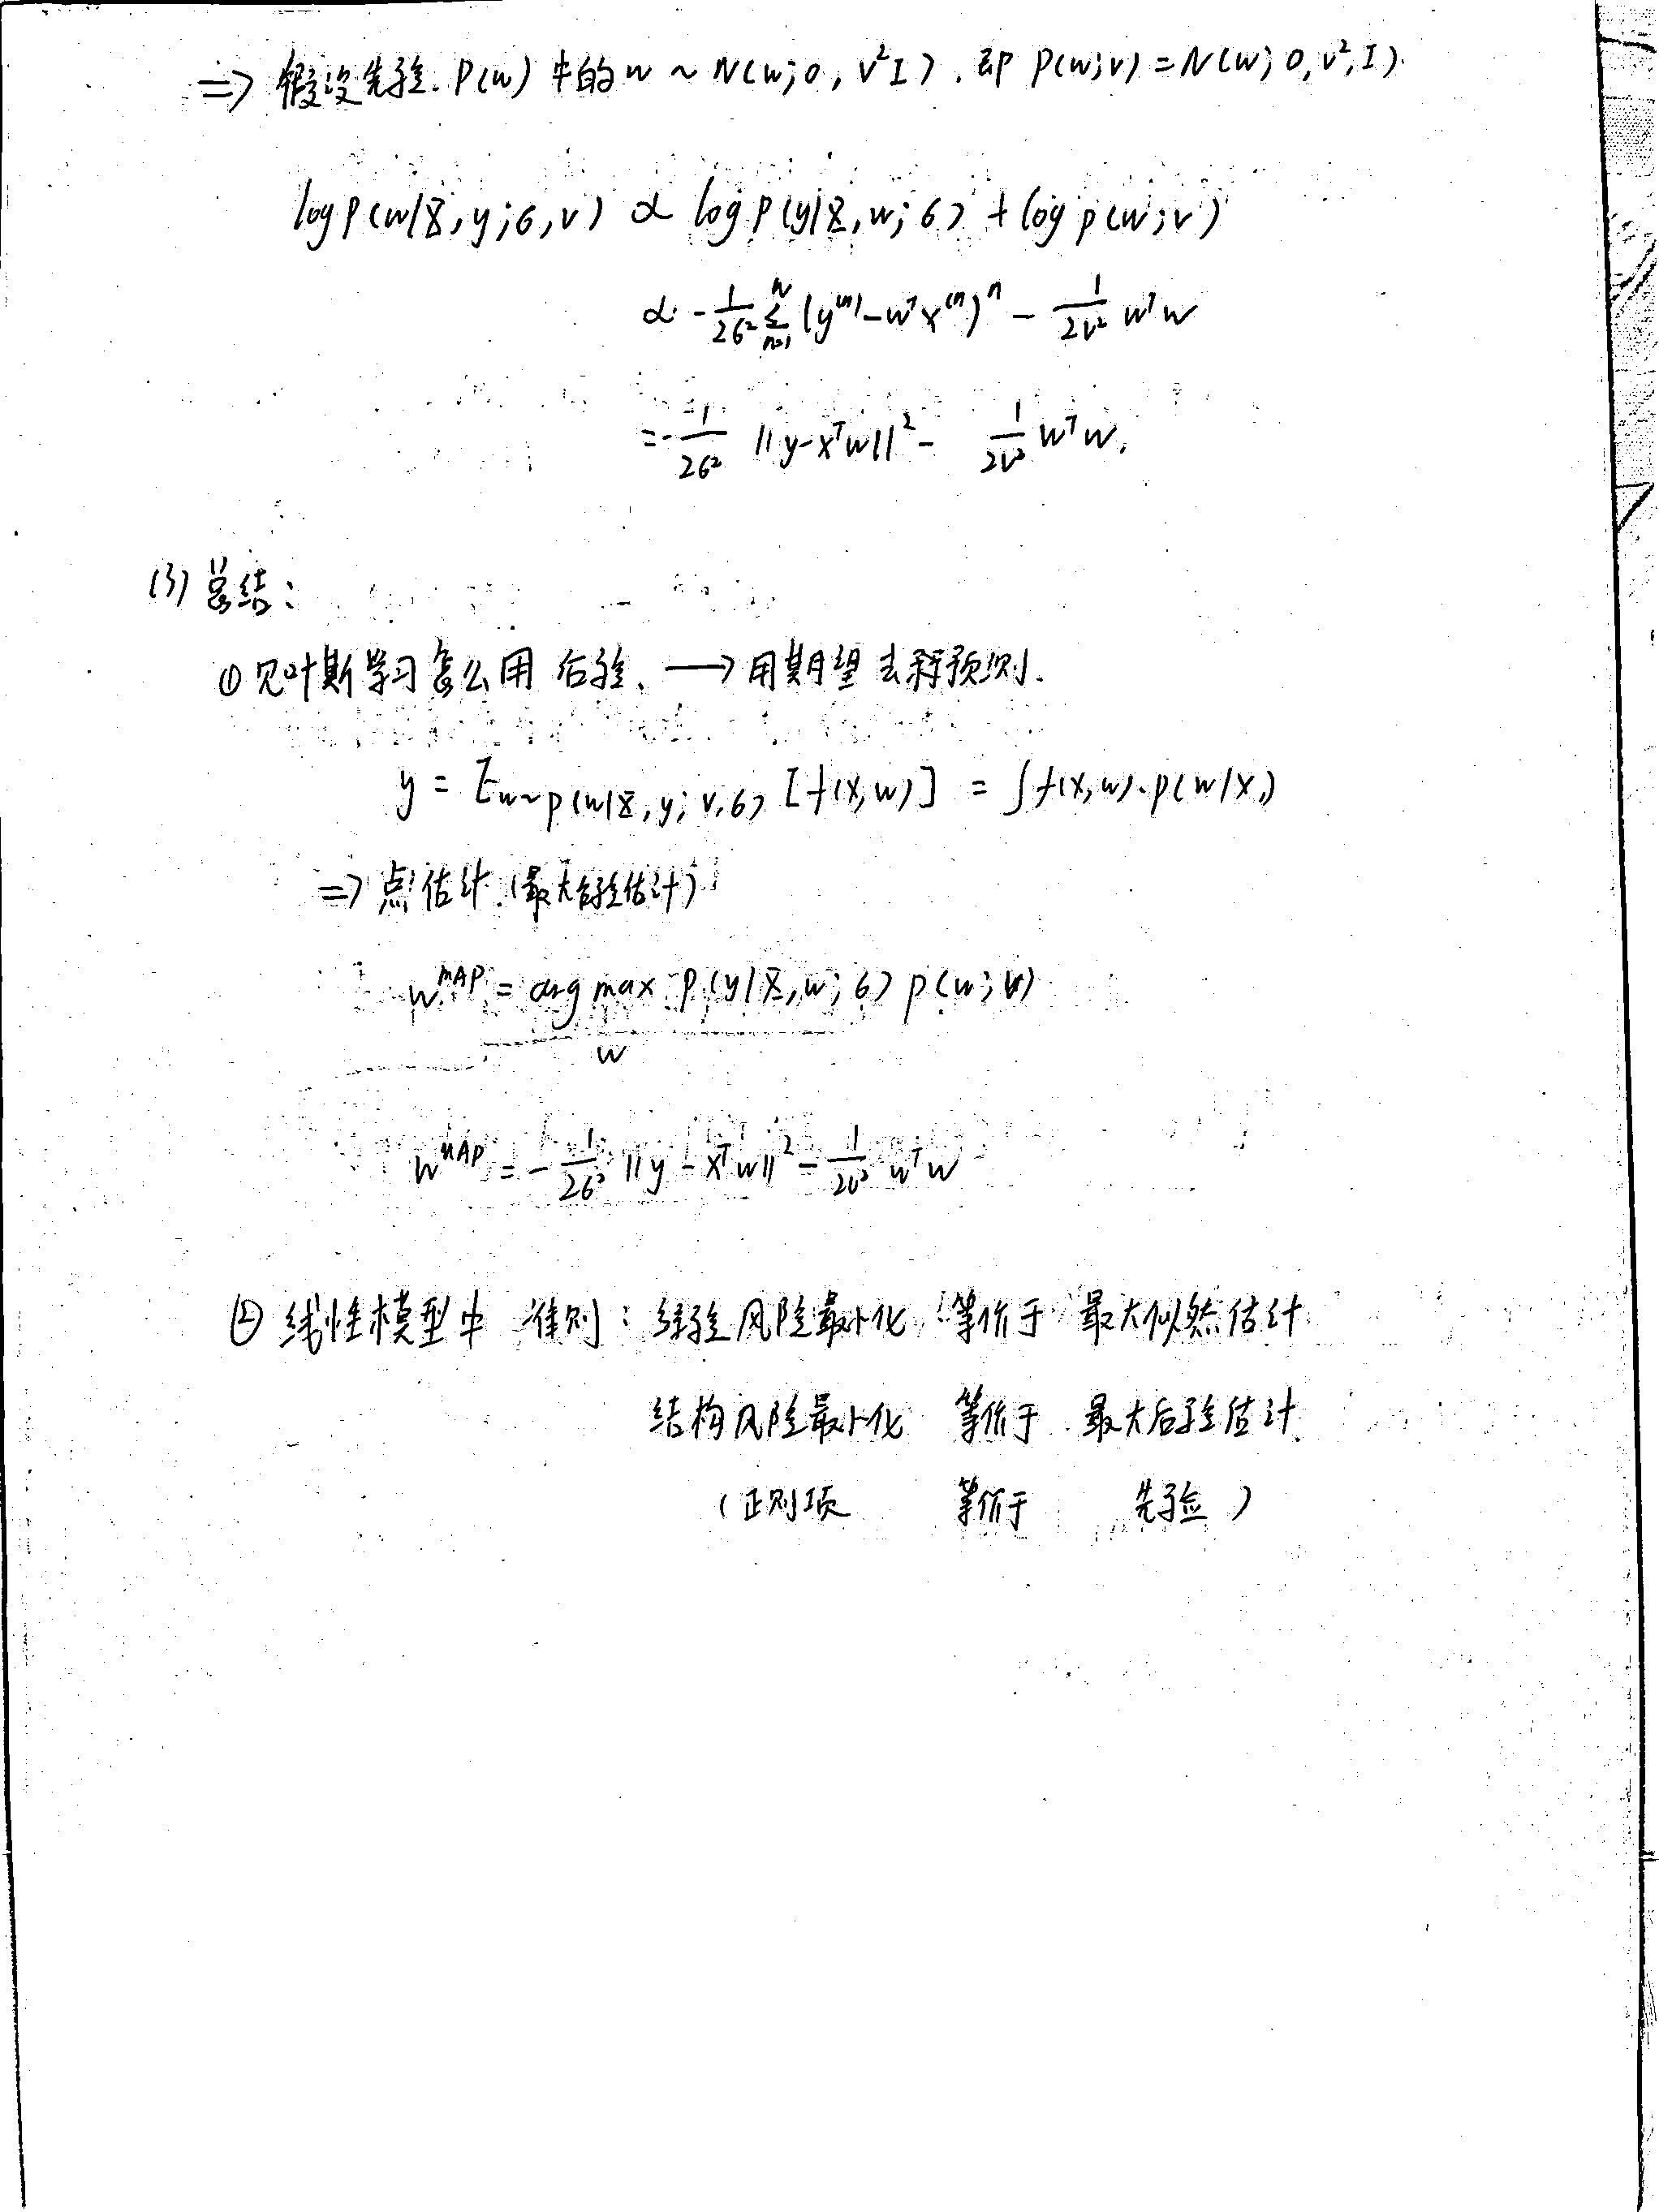 => 假设先验. P(w) 中的 w ~ N(w;0, ν²I). 即 P(w;ν) = N(w; 0, ν², I).
log p(w|X, y; σ, ν) ∝ log p(y|X, w; σ) + log p(w; ν)
∝ - 1/(2σ²) Σ_{n=1}^{N} (y^{(n)} - w^T x^{(n)})^n - 1/(2ν²) w^T w
= - 1/(2σ²) ||y - X^T w||² - 1/(2ν²) w^T w.
(3) 总结:
① 贝叶斯学习怎么用 后验. ⟶ 用期望去预测.
y = E_{w~p(w|X, y; ν, σ)} [f(x, w)] = ∫ f(x, w)·p(w|x,)
=> 点估计 (最大后验估计)
w^{MAP} = arg max_w p(y|X, w; σ) p(w; ν)
w^{MAP} = - 1/(2σ²) ||y - X^T w||² - 1/(2ν²) w^T w
② 线性模型中 准则: 经验风险最小化 等价于 最大似然估计
结构风险最小化 等价于 最大后验估计
(正则项 等价于 先验)